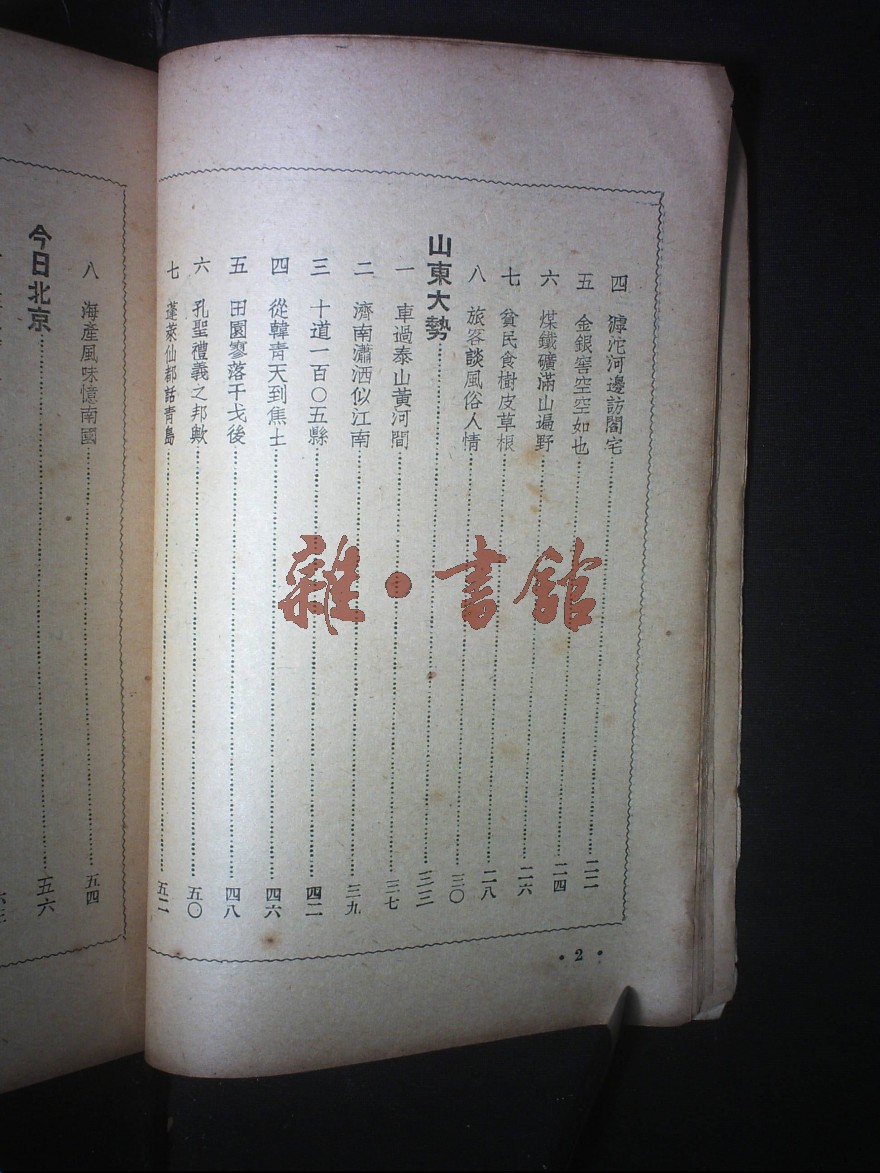 四　滹沱河邊訪閻宅……二二
五　金銀窖空空如也……二四
六　煤鐵礦滿山遍野……二六
七　貧民食樹皮草根……二八
八　旅客談風俗人情……三〇
山東大勢……三三
一　車過泰山黃河間……三七
二　濟南瀟洒似江南……三九
三　十道一百〇五縣……四二
四　從韓青天到焦土……四六
五　田園寥落干戈後……四八
六　孔聖禮義之邦歟……五〇
七　蓬萊仙都話青島……五二
• 2 •
八　海產風味憶南國……五四
今日北京……五六
雜・書館